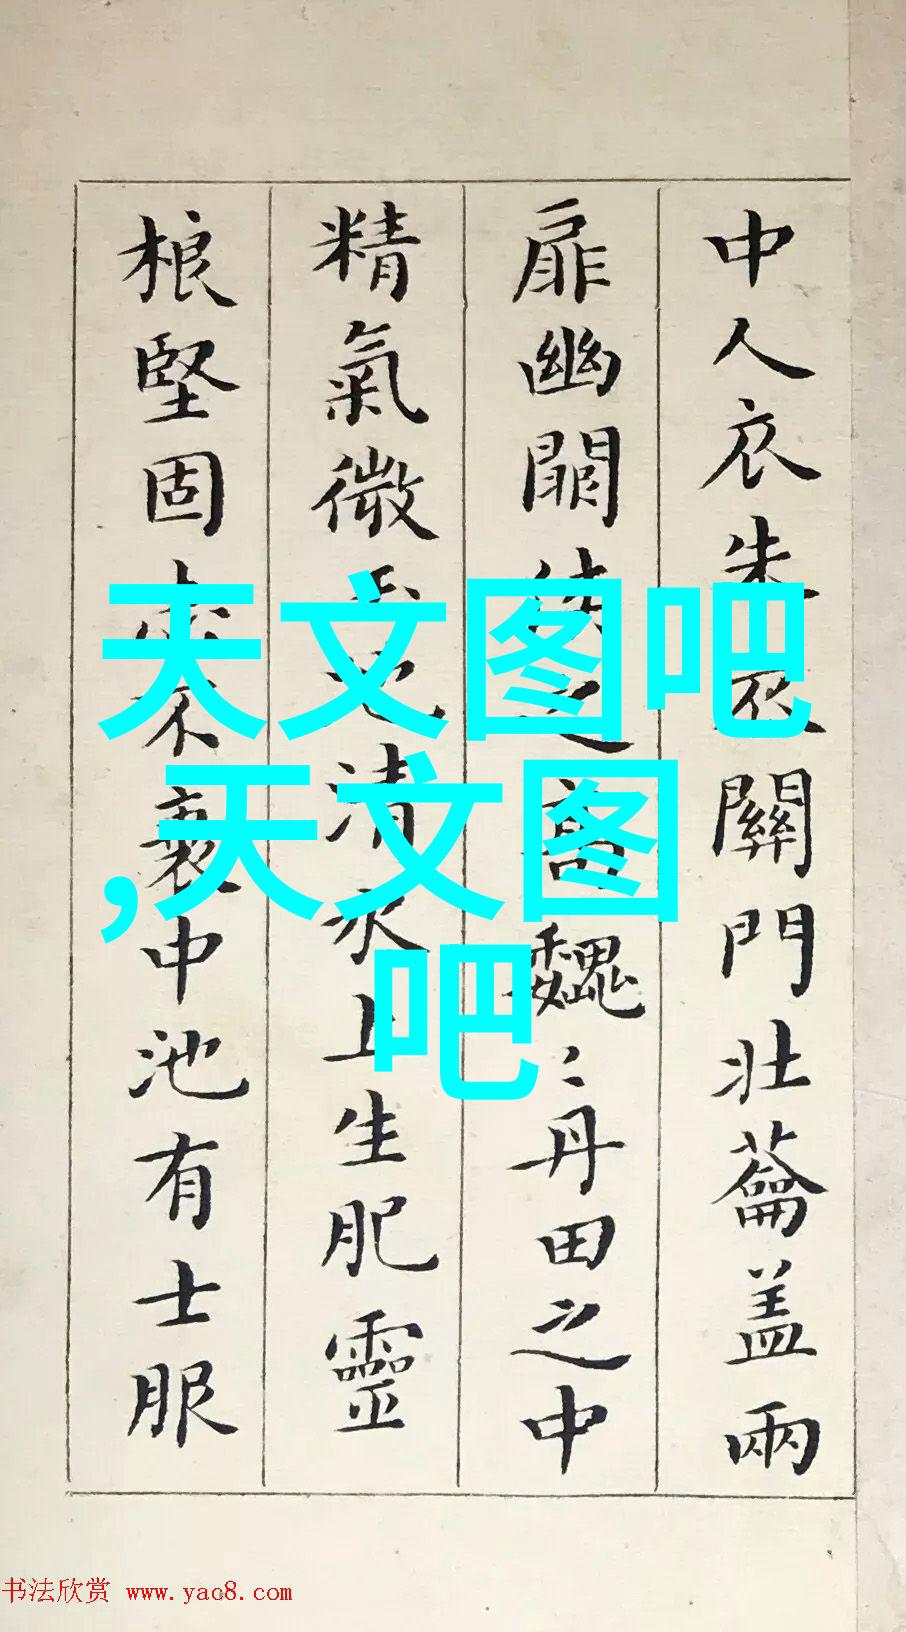 中人衣朱衣關門壯蘥盖兩
扉幽之高巍〻丹田之中
精氣微池清水上生肥靈
根堅固不衰中池有士服
天文图吧
,天文图
吧
书法欣赏 www.yac8.com